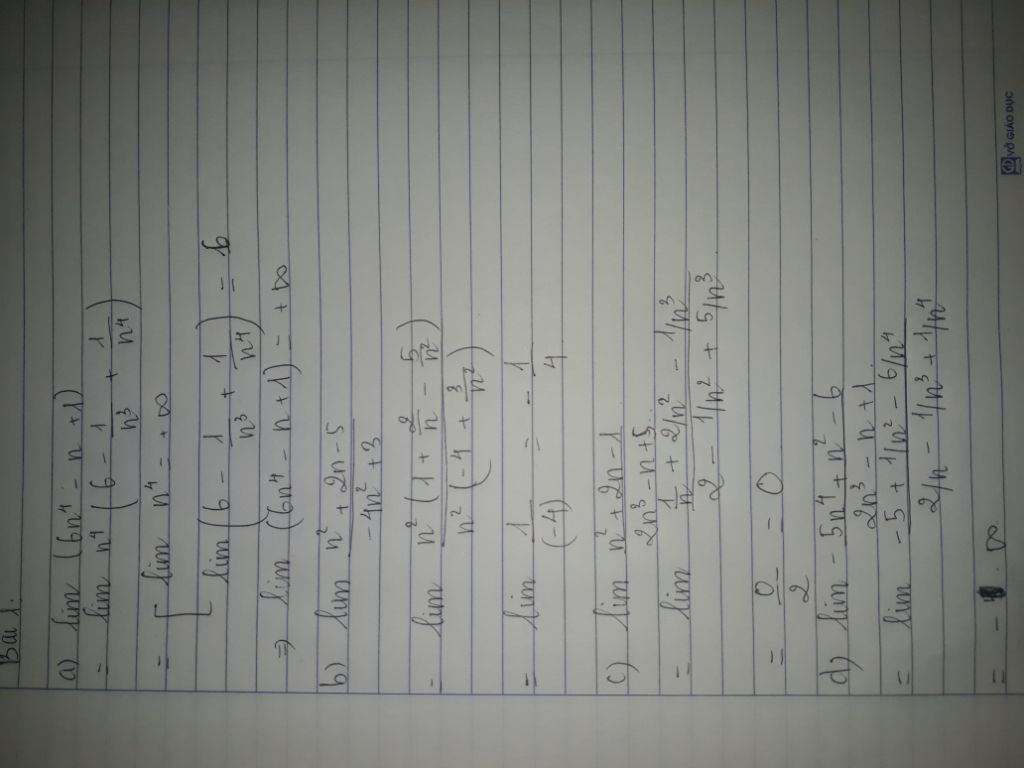 Bài 1.
a) lim (6n⁴ - n + 1)
= lim n⁴ (6 - 1/n³ + 1/n⁴)
= [ lim n⁴ = +∞
lim (6 - 1/n³ + 1/n⁴) = 6
⇒ lim (6n⁴ - n + 1) = +∞
b) lim (n² + 2n - 5)/(-4n² + 3)
= lim n²(1 + 2/n - 5/n²)/n²(-4 + 3/n²)
= lim 1/(-4) = -1/4
c) lim (n² + 2n - 1)/(2n³ - n + 5)
= lim (1/n + 2/n² - 1/n³)/(2 - 1/n² + 5/n³)
= 0/2 = 0
d) lim (-5n⁴ + n² - 6)/(2n³ - n + 1)
= lim (-5 + 1/n² - 6/n⁴)/(2/n - 1/n³ + 1/n⁴)
= -∞
VỞ GIÁO DỤC